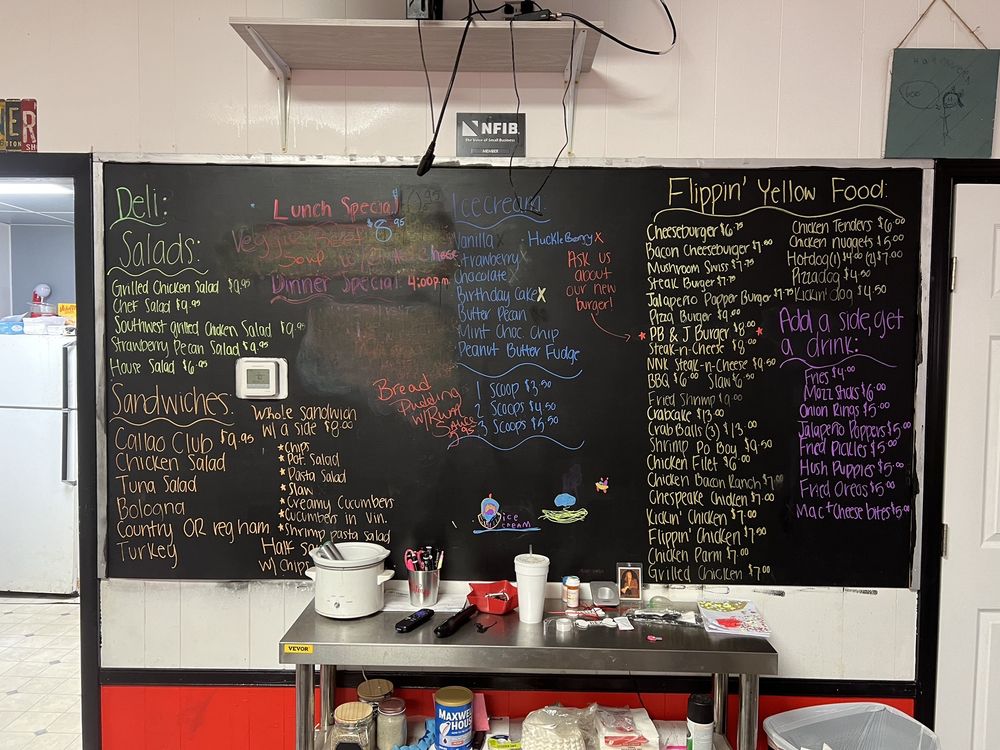 TER
NFIB
The Voice of Small Business
MEMBER
Deli:
Salads:
Grilled Chicken Salad $9.95
Chef Salad $9.95
Southwest grilled Chicken Salad $9.95
Strawberry Pecan Salad $9.95
House Salad $6.95
Sandwiches:
Callao Club $9.95
Chicken Salad
Tuna Salad
Bologna
Country OR reg ham
Turkey
Whole sandwich
w/ a side $8.00
*Chips
*Pot. Salad
*Pasta Salad
*Slaw
*Creamy Cucumbers
*Cucumbers in Vin.
*Shrimp pasta salad
Half
w/ Chips
Lunch Special
$8.95
Veggie Beef
Soup
Dinner Special 4:00pm
Bread
Pudding
w/Rum
Sauce
Ice cream:
Vanilla x
Strawberry x
Chocolate x
Birthday Cake x
Butter Pecan
Mint Choc. Chip
Peanut Butter Fudge
· Huckleberry x
1 SCOOP $3.50
2 Scoops $4.50
3 Scoops $5.50
Ask us
about
our new
burger!
ICE
CREAM
Flippin' Yellow Food:
Cheeseburger $6.75
Bacon Cheeseburger $7.00
Mushroom Swiss $7.75
Steak Burger $7.75
Jalapeño Popper Burger $7.75
Pizza Burger $9.00
* PB & J Burger $8.00 *
Steak-n-Cheese $8.00
NNK Steak-n-Cheese $9.50
BBQ $6.00 Slaw $6.50
Fried Shrimp 9.00
Crabcake $13.00
Crab Balls (3) $13.00
Shrimp Po Boy $9.50
Chicken Filet $6.00
Chicken Bacon Ranch $7.00
Chespeake Chicken $7.00
Kickin' Chicken $7.00
Flippin' Chicken $7.50
Chicken Parm $7.00
Grilled Chicken $7.00
Chicken Tenders $6.00
Chicken nuggets $5.00
Hotdog (1) $4.00 (2) $7.00
Pizzadog $4.50
Kickin' dog $4.50
Add a side, get
a drink:
Fries $4.00
Mozz Sticks $6.00
Onion Rings $5.00
Jalapeño Poppers $5.00
Fried Pickles $5.00
Hush Puppies $5.00
Fried Oreos $5.00
Mac + Cheese bites $5.00
VEVOR
MAXWELL
HOUSE